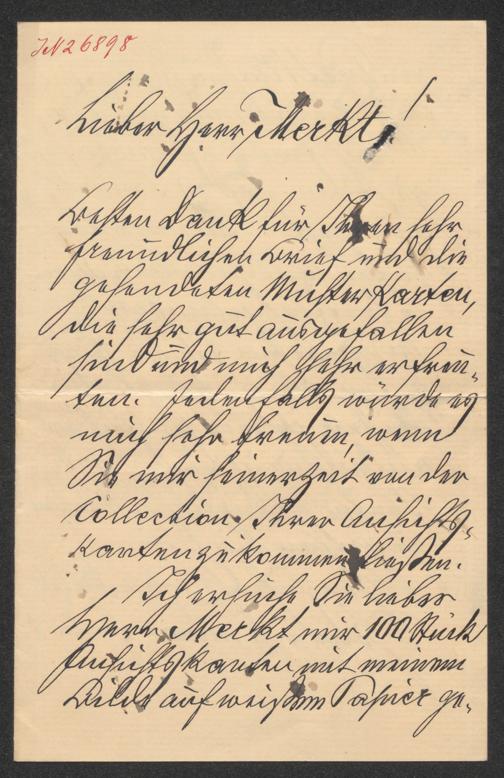 JN 26898
Lieber Herr Merkt!
Besten Dank für Ihren sehr
freundlichen Brief und die
gesendeten Muster Karten,
die sehr gut ausgefallen
sind und mich sehr erfreu-
ten. Jedenfalls würde es
mich sehr freuen, wenn
Sie mir seinerzeit von der
Collection Ihrer Ansichts-
karten zukommen ließen.
Ich ersuche Sie lieber
Herr Merkt mir 100 Stück
Ansichtskarten mit meinem
Bilde auf weißem Papier ge-